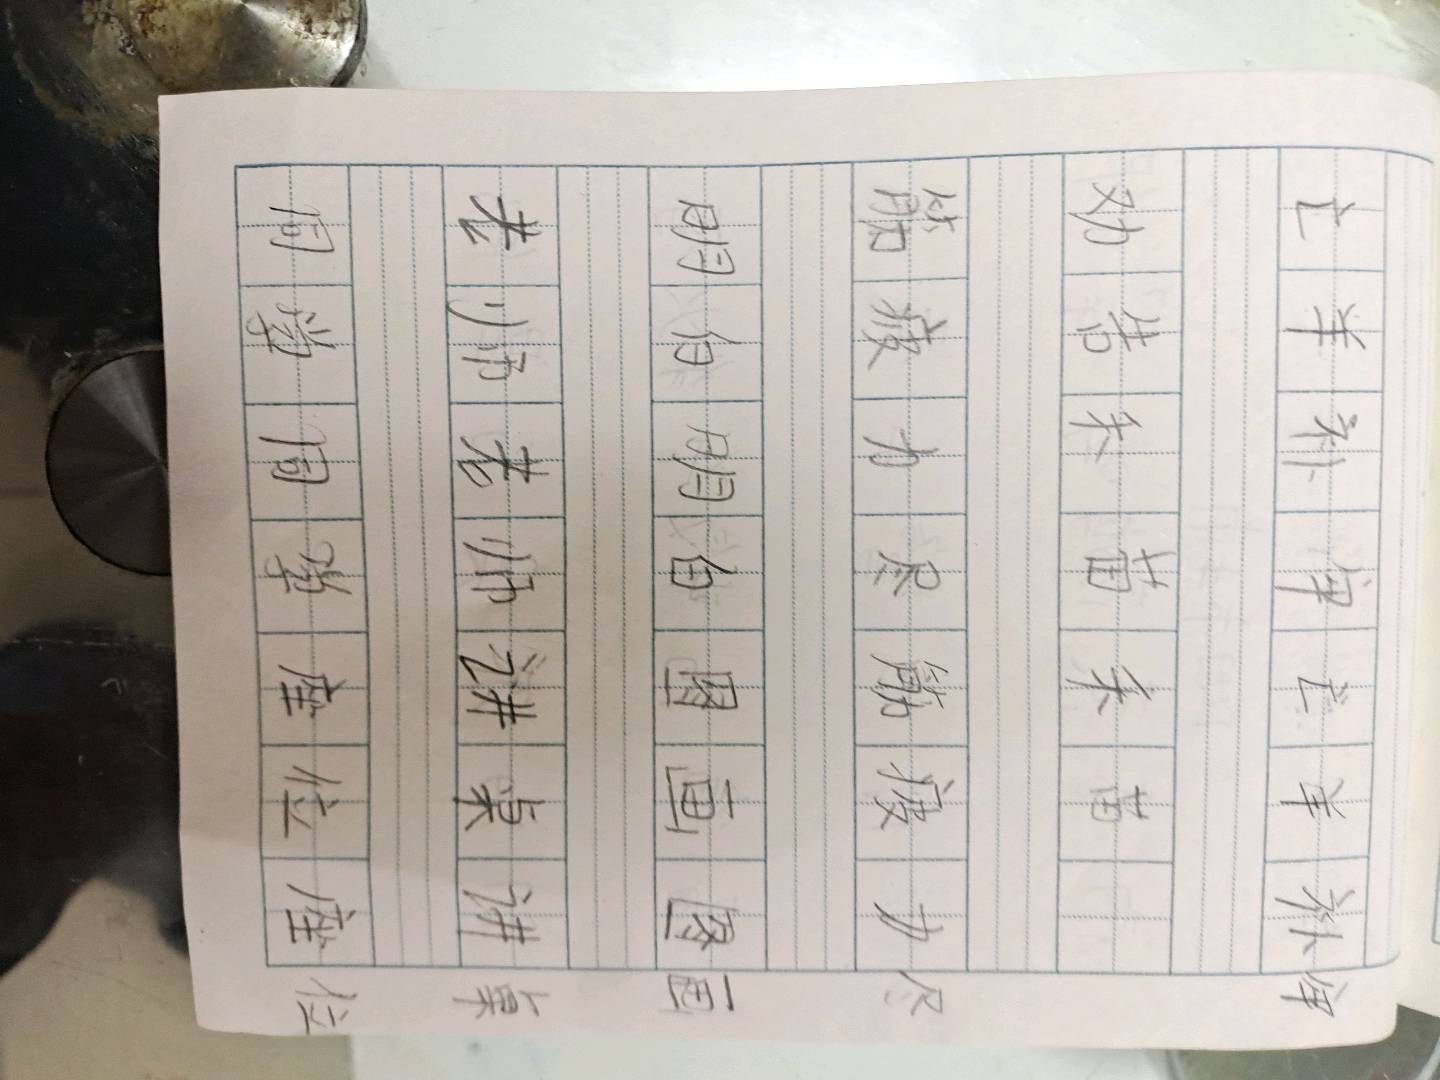 亡羊补牢亡羊补牢
劝告禾苗禾苗
筋疲力尽筋疲力尽
明白明白图画图画
老师老师讲桌讲桌
同学同学座位座位